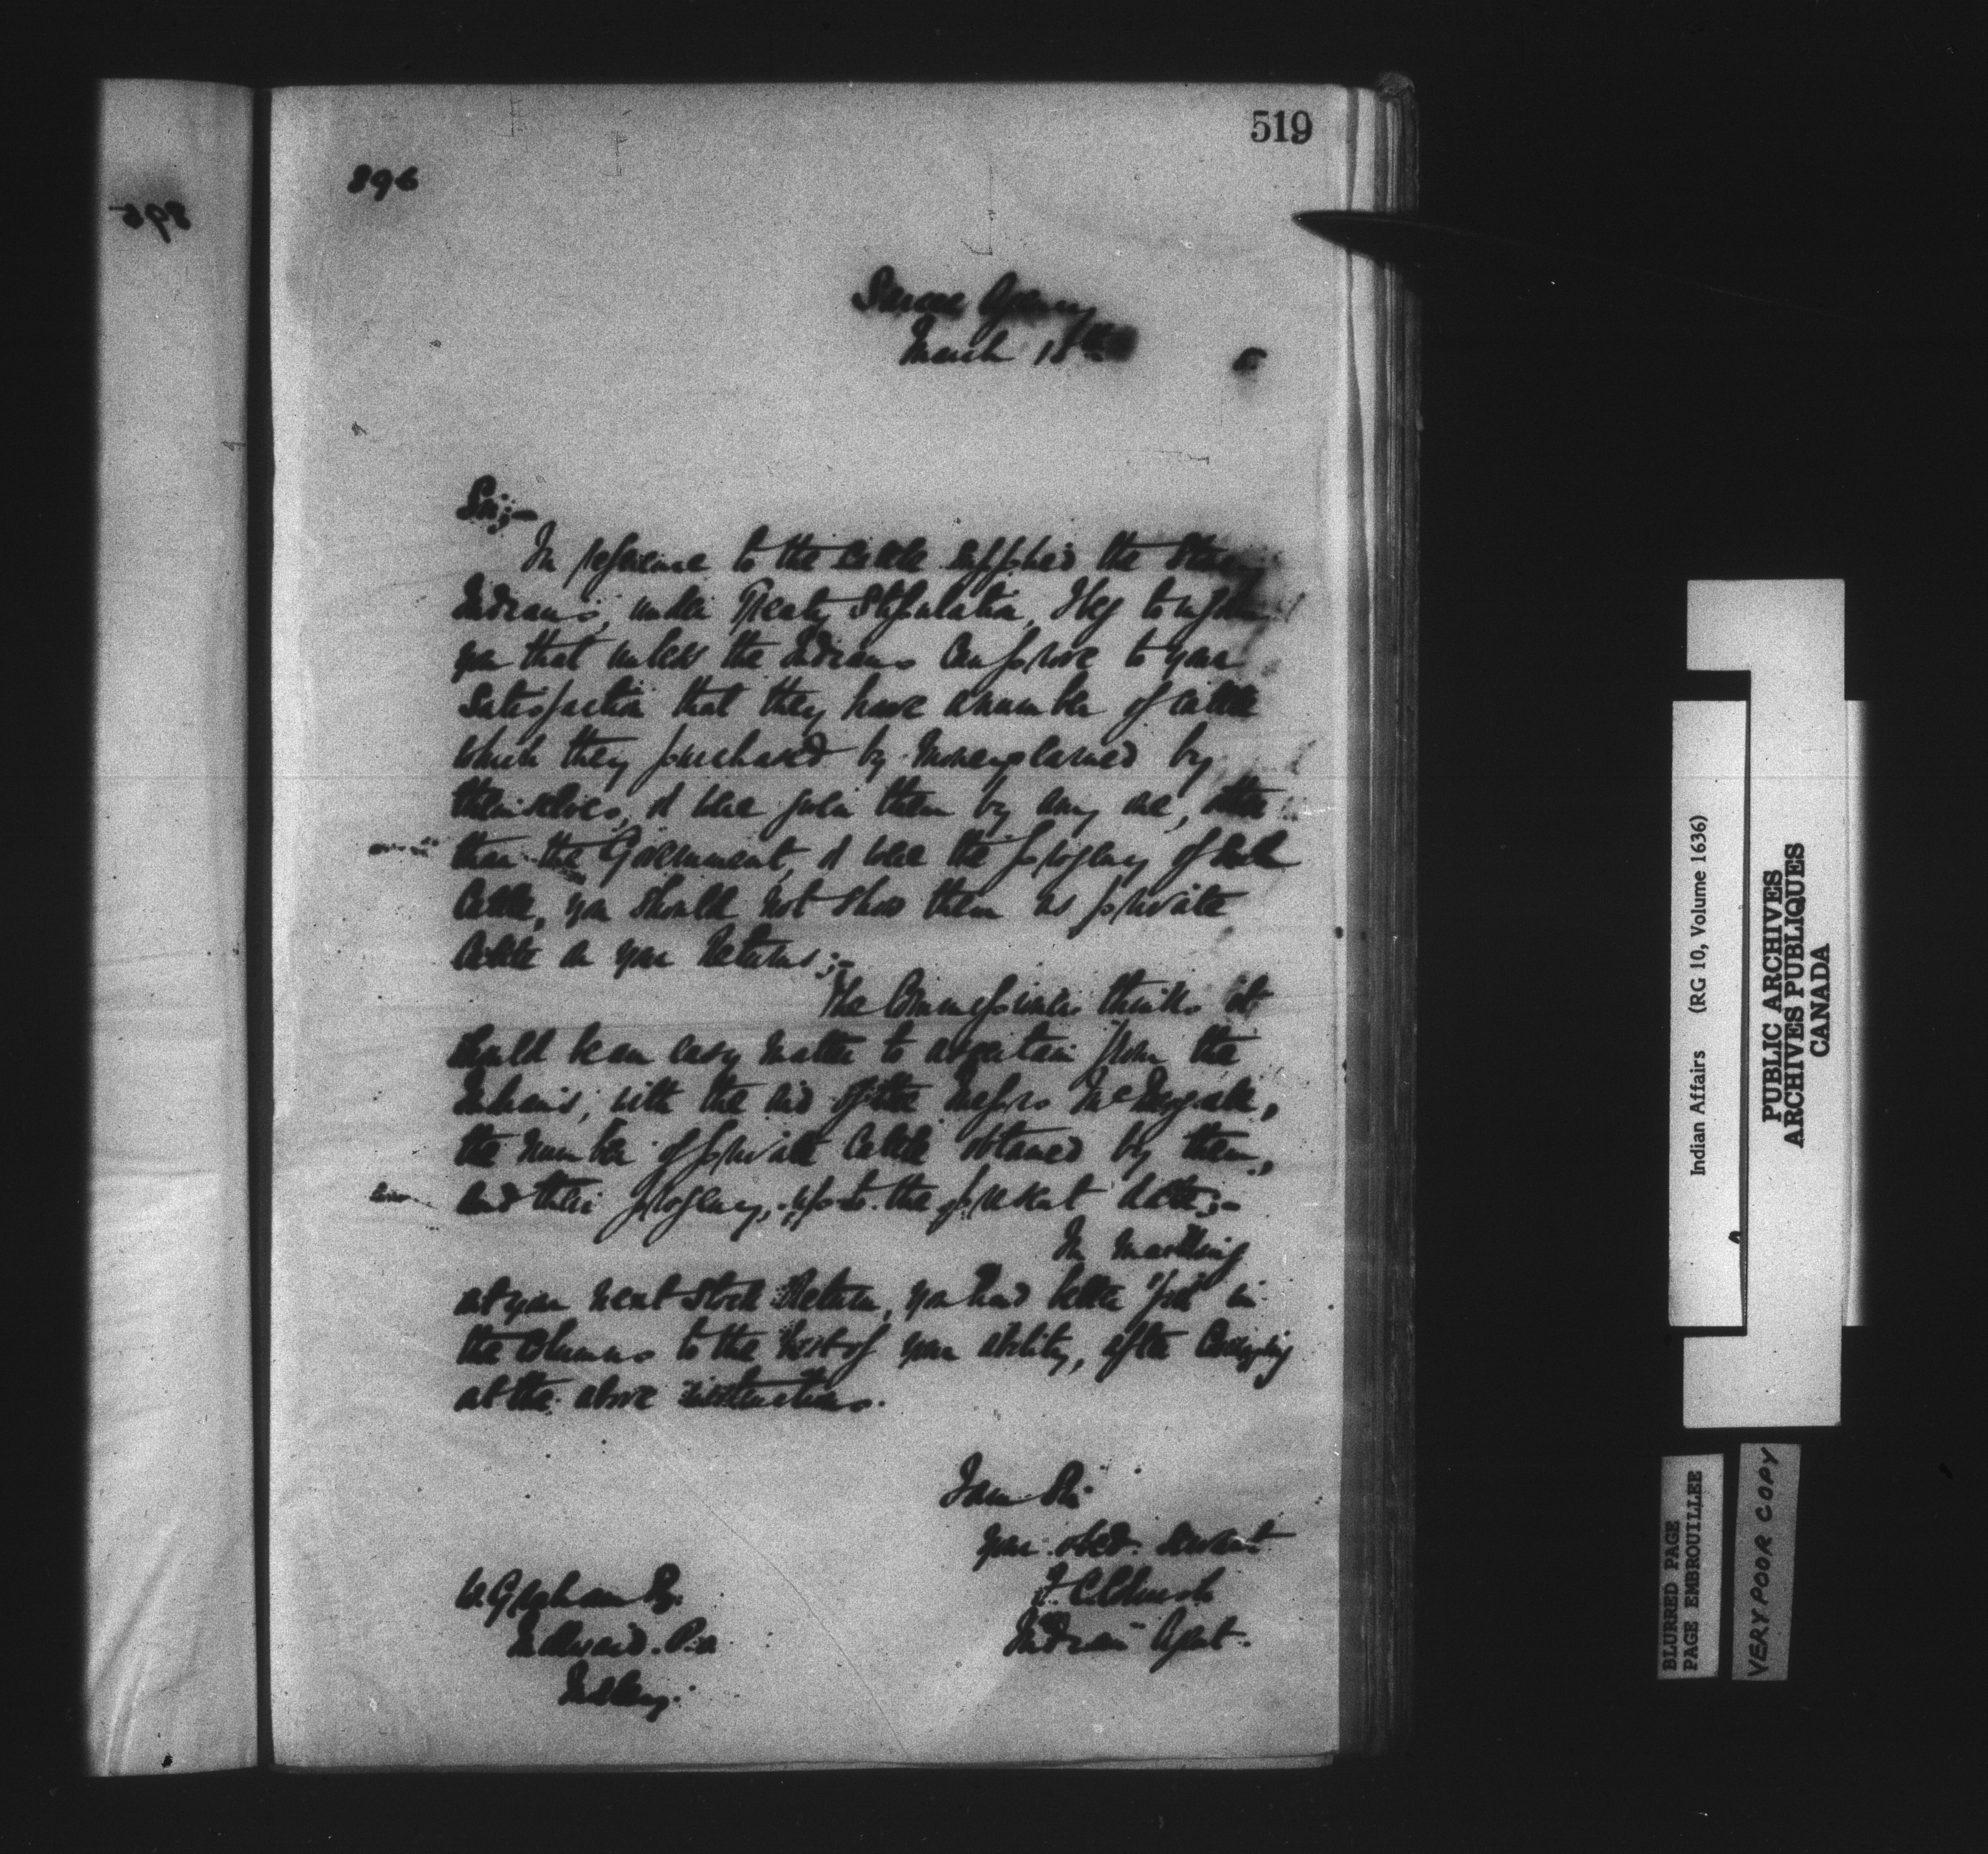 519
896
Sarcee Agency
March 18th
Sir;-
In reference to the cattle supplied the Stoney
Indians, under Treaty Stipulation, I beg to inform
you that unless the Indians can prove to your
satisfaction that they have a number of cattle
which they purchased by money earned by
themselves, or were given them by any one, other
than the Government, or were the progeny of such
Cattle, you should not show them as private
cattle on your Returns;-
The Commissioner thinks it
would be an easy matter to ascertain from the
Indians, with the aid of the Messrs McDougall,
the number of private Cattle obtained by them,
and their progeny, up to the present date;-
In making
out your next Stock Return, you had better fill in
the columns to the best of your ability, after carrying
out the above instructions.
I am Sir
your obed. servant
Indian Agent.
W. Graham Esq.
Morley.
Indian Affairs (RG 10, Volume 1636)
PUBLIC ARCHIVES
ARCHIVES PUBLIQUES
CANADA
BLURRED PAGE
PAGE EMBROUILLEE
VERY POOR COPY